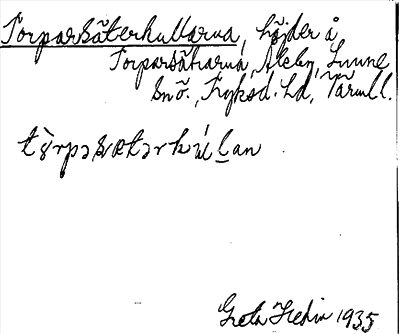 Torparsäterkullarna, höjder å
Torparsätrarna, Åleby, Sunne
Snö., Fryksd. hd, Värml.
tòrpəsætərkúl̲an
Greta Hedin 1935